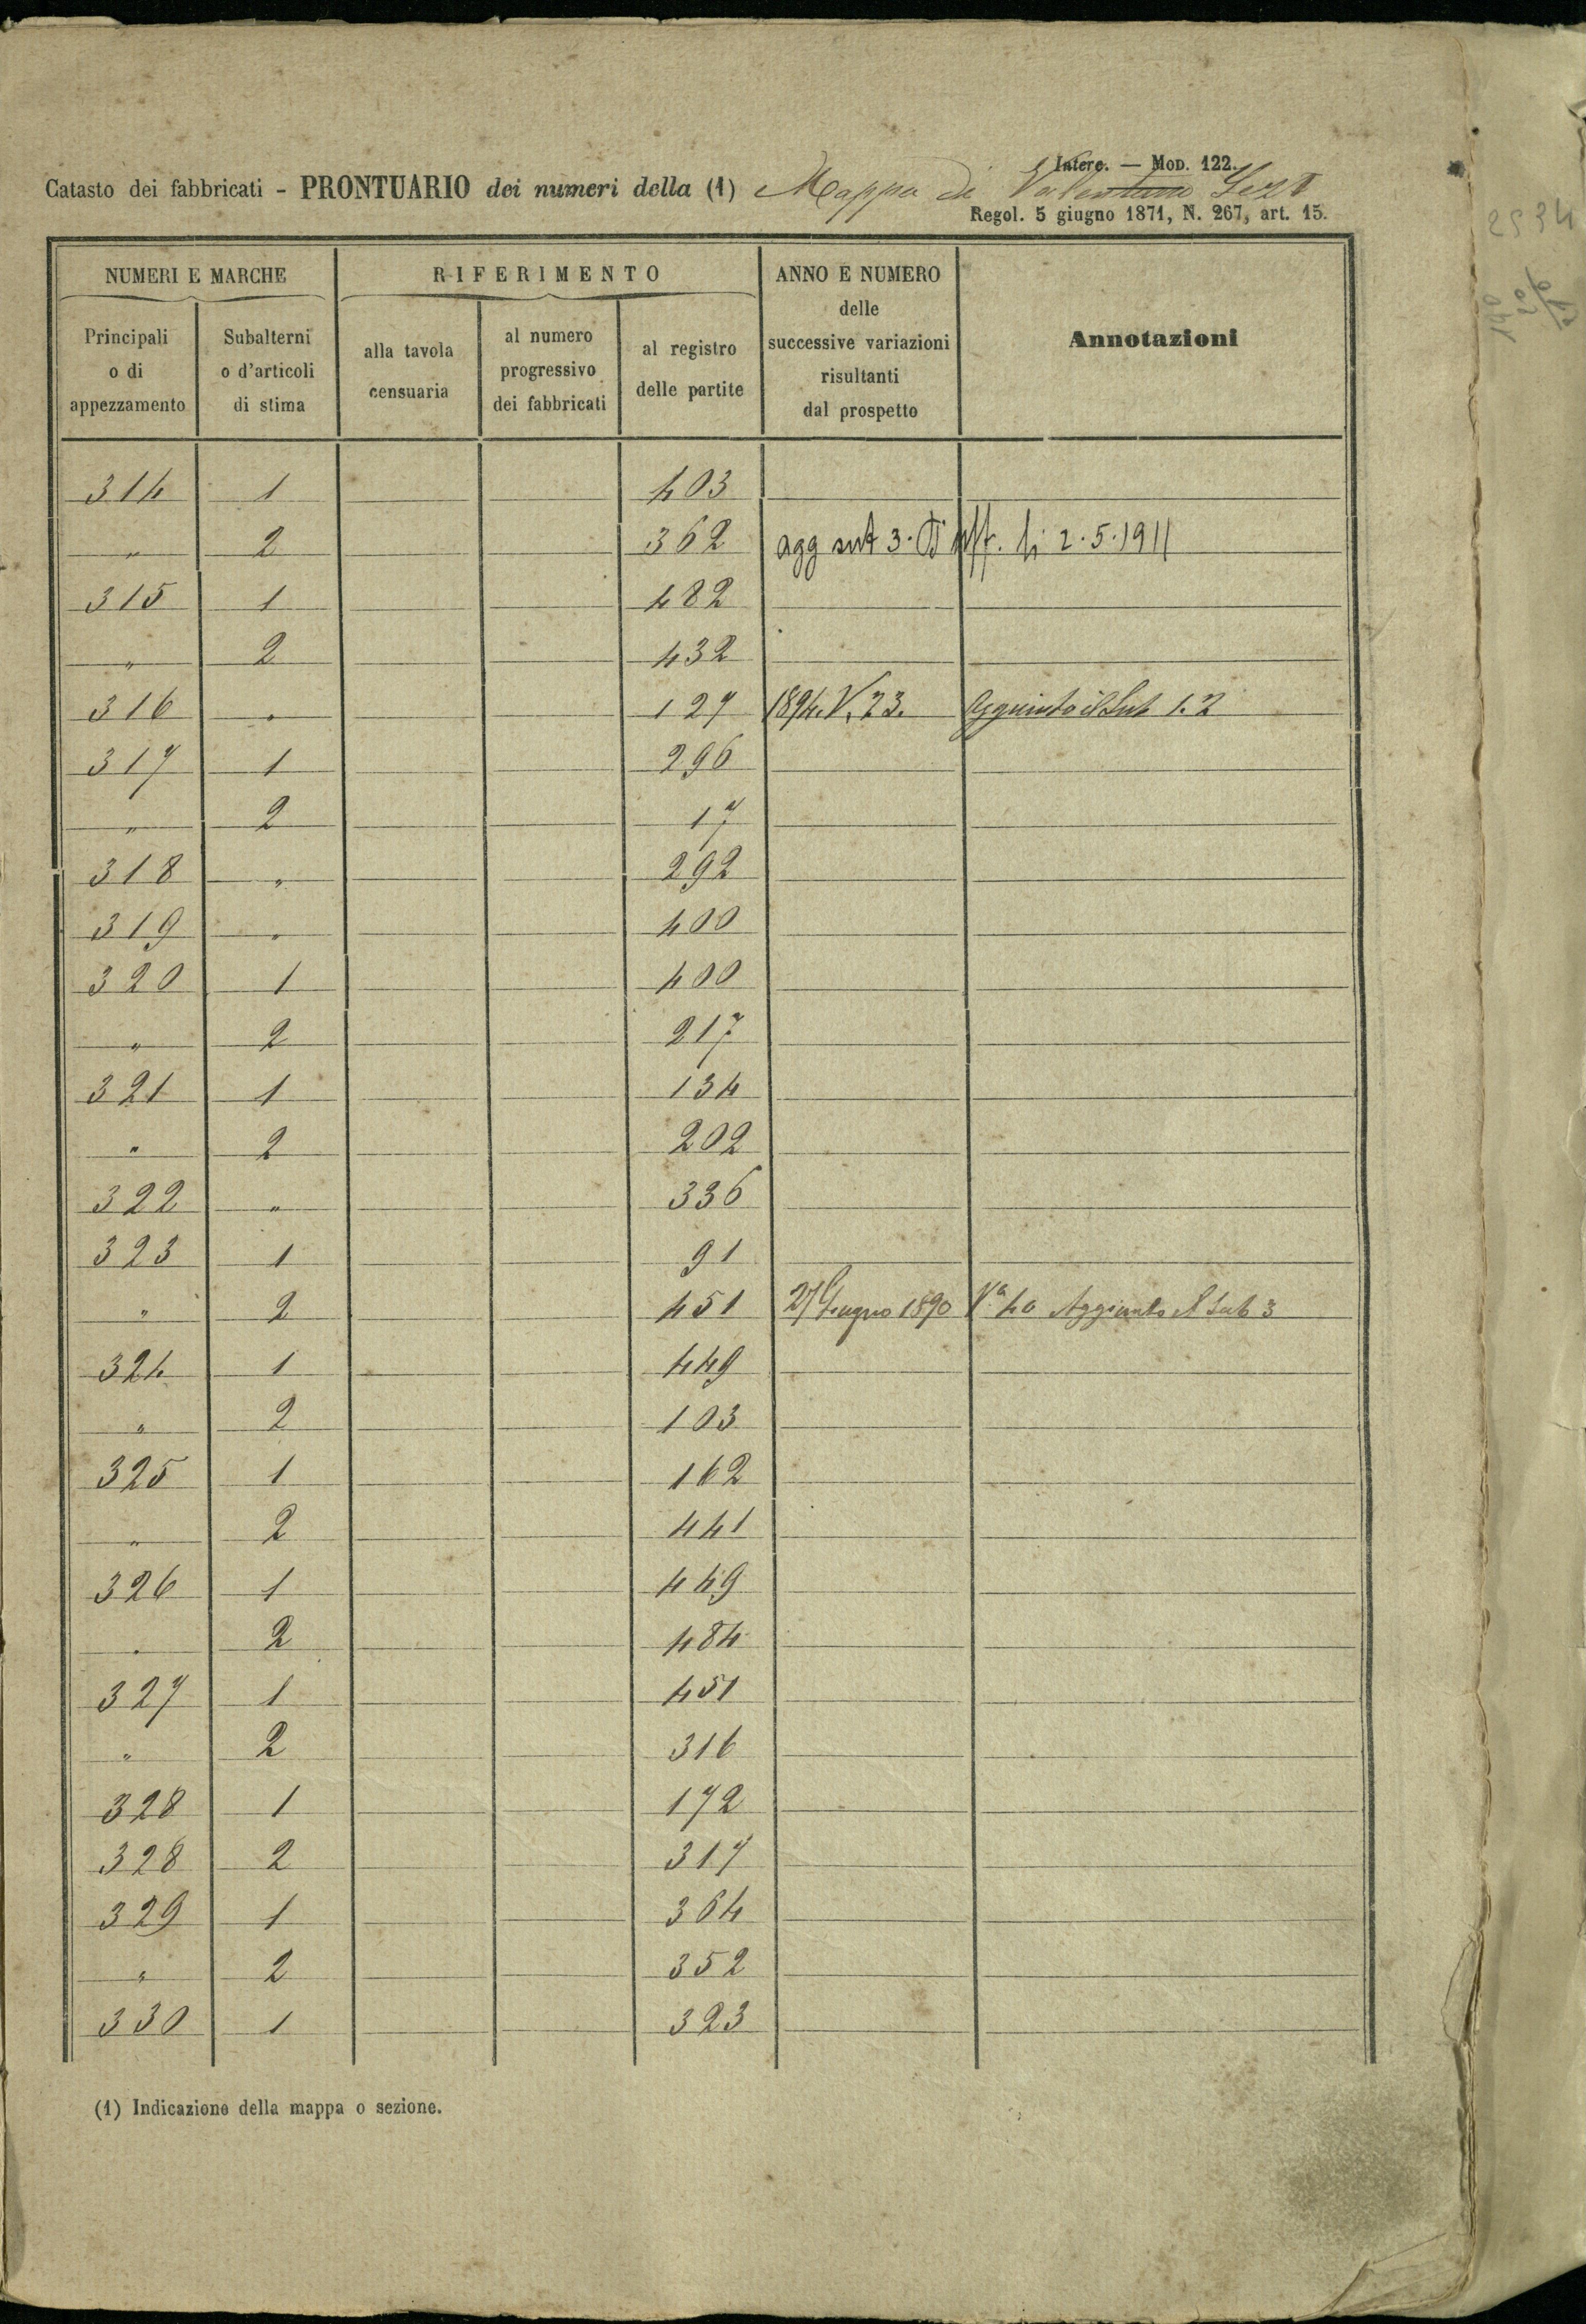 Interc. — Mod. 122.
Catasto dei fabbricati - PRONTUARIO dei numeri della (1) Mappa di Valentano Sez I
Regol. 5 giugno 1871, N. 267, art. 15.
2534
NUMERI E MARCHE
RIFERIMENTO
ANNO E NUMERO delle successive variazioni risultanti dal prospetto
Annotazioni
Principali o di appezzamento
Subalterni o d'articoli di stima
alla tavola censuaria
al numero progressivo dei fabbricati
al registro delle partite
314 1 403
" 2 362 agg sub 3. uff. li 2.5.1911
315 1 482
" 2 432
316 " 127 1894. V. 23. Aggiunto il Sub 1.2
317 1 296
" 2 17
318 " 292
319 " 400
320 1 400
" 2 217
321 1 134
" 2 202
322 " 336
323 1 91
" 2 451 27 Giugno 1890 Va 40 Aggiunto il Sub 3
324 1 449
" 2 103
325 1 162
" 2 441
326 1 449
" 2 484
327 1 451
" 2 316
328 1 172
328 2 317
329 1 364
" 2 352
330 1 323
(1) Indicazione della mappa o sezione.